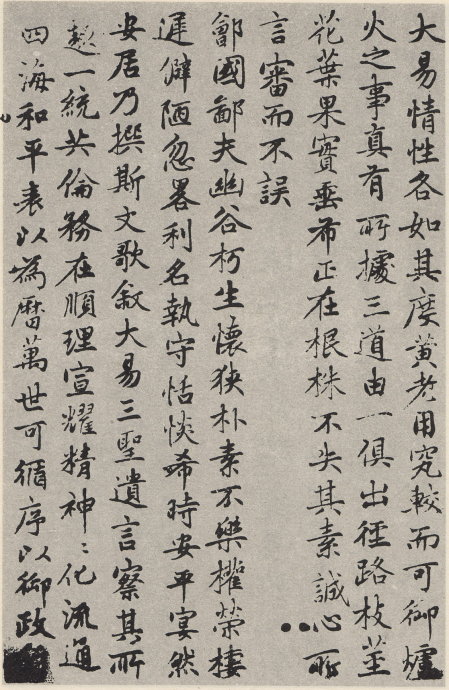 大易情性各如其度黄老用究較而可御爐
火之事真有所據三道由一俱出徑路枝莖
花葉果實垂布正在根株不失其素誠心所
言審而不誤
鄶國鄙夫幽谷朽生懷狹朴素不樂權榮棲
遲僻陋忽畧利名執守恬惔希時安平宴然
安居乃撰斯文歌敘大易三聖遺言察其所
趣一統共倫務在順理宣耀精神〻化流通
四海和平表以為曆萬世可循序以御政